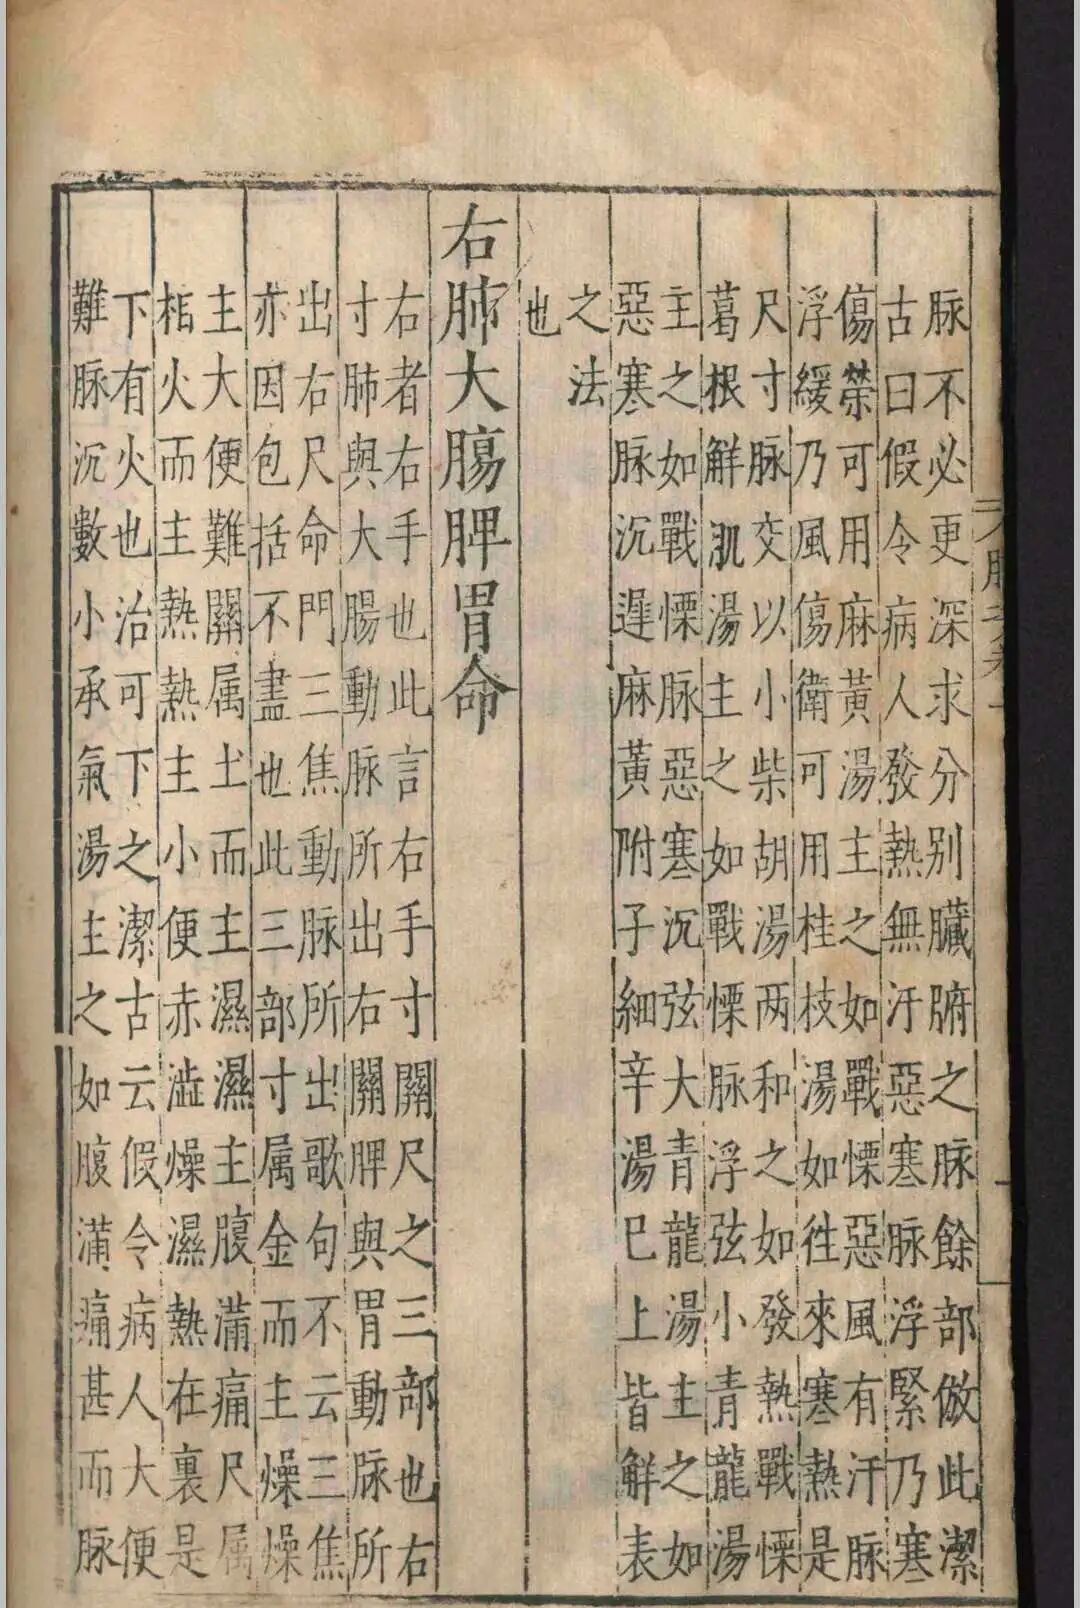 脉不必更深求分别臟腑之脉餘部倣此潔
古曰假令病人發熱無汗惡寒脉浮緊乃寒
傷榮可用麻黃湯主之如戰慄惡風有汗脉
浮緩乃風傷衛可用桂枝湯如徃來寒熱是
尺寸脉交以小柴胡湯两和之如發熱戰慄
葛根解肌湯主之如戰慄脉浮弦小青龍湯
主之如戰慄脉惡寒沉弦大青龍湯主之如
惡寒脉沉遲麻黃附子細辛湯巳上皆解表
之法
也
右肺大腸脾胃命
右者右手也此言右手寸關尺之三部也右
寸肺與大腸動脉所出右關脾與胃動脉所
出右尺命門三焦動脉所出歌句不云三焦
亦因包括不盡也此三部寸属金而主燥燥
主大便難關属土而主濕濕主腹滿痛尺属
相火而主熱熱主小便赤澁燥濕熱在裏是
下有火也治可下下之潔古云假令病人大便
難脉沉數小承氣湯主之如腹滿痛甚而脉